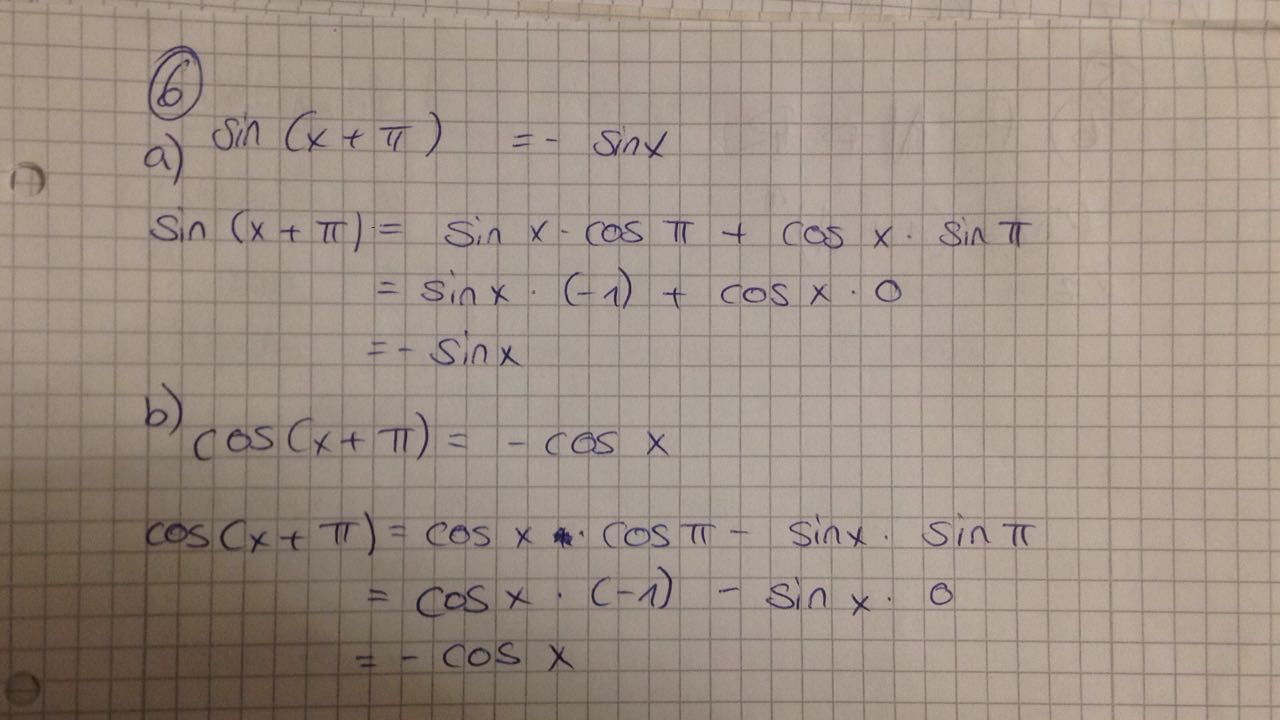 6
a) sin (x + π) = - sinx
sin (x + π) = sin x · cos π + cos x · sin π
= sin x · (-1) + cos x · 0
= - sin x
b) cos(x + π) = - cos x
cos(x + π) = cos x · cos π - sinx · sin π
= cos x · (-1) - sin x · 0
= - cos x